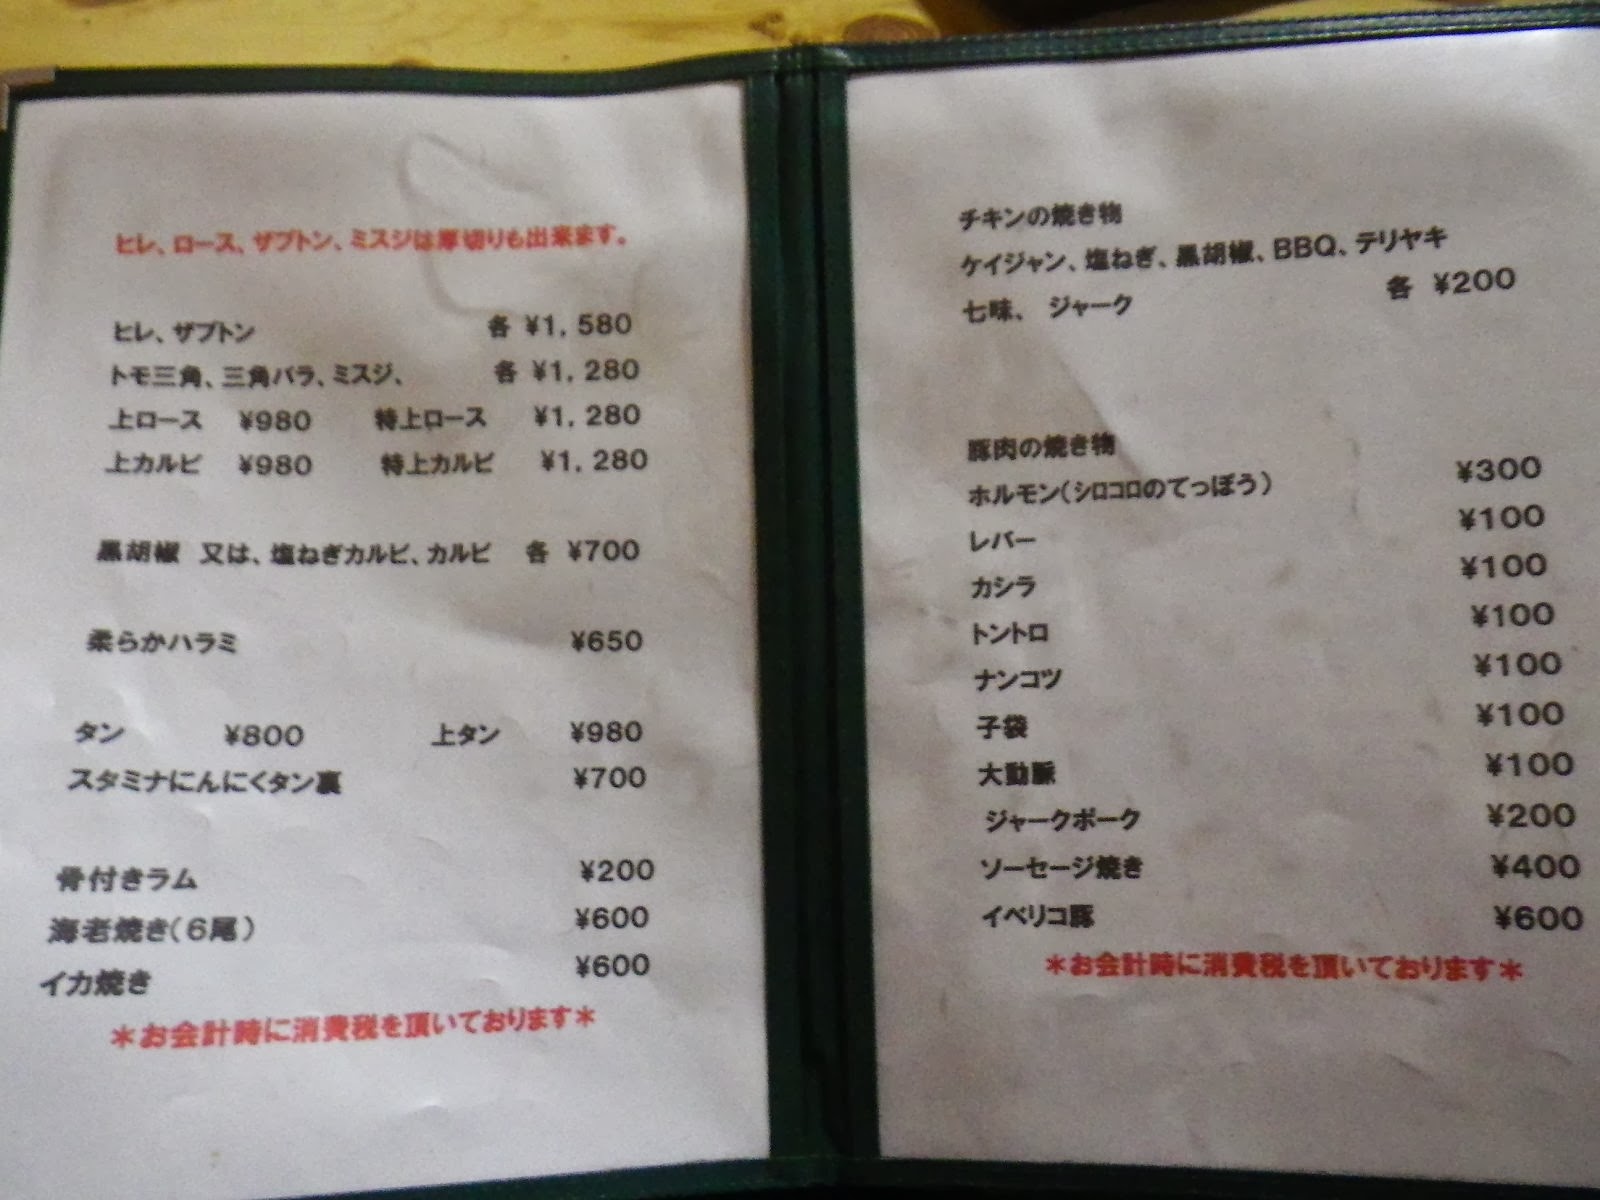 ヒレ、ロース、ザブトン、ミスジは厚切りも出来ます。
ヒレ、ザブトン 各 ¥1,580
トモ三角、三角バラ、ミスジ、 各 ¥1,280
上ロース ¥980 特上ロース ¥1,280
上カルビ ¥980 特上カルビ ¥1,280
黒胡椒 又は、塩ねぎカルビ、カルビ 各 ¥700
柔らかハラミ ¥650
タン ¥800 上タン ¥980
スタミナにんにくタン裏 ¥700
骨付きラム ¥200
海老焼き(6尾) ¥600
イカ焼き ¥600
*お会計時に消費税を頂いております*
チキンの焼き物
ケイジャン、塩ねぎ、黒胡椒、BBQ、テリヤキ
七味、 ジャーク 各 ¥200
豚肉の焼き物
ホルモン(シロコロのてっぽう) ¥300
レバー ¥100
カシラ ¥100
トントロ ¥100
ナンコツ ¥100
子袋 ¥100
大動脈 ¥100
ジャークポーク ¥200
ソーセージ焼き ¥400
イベリコ豚 ¥600
*お会計時に消費税を頂いております*